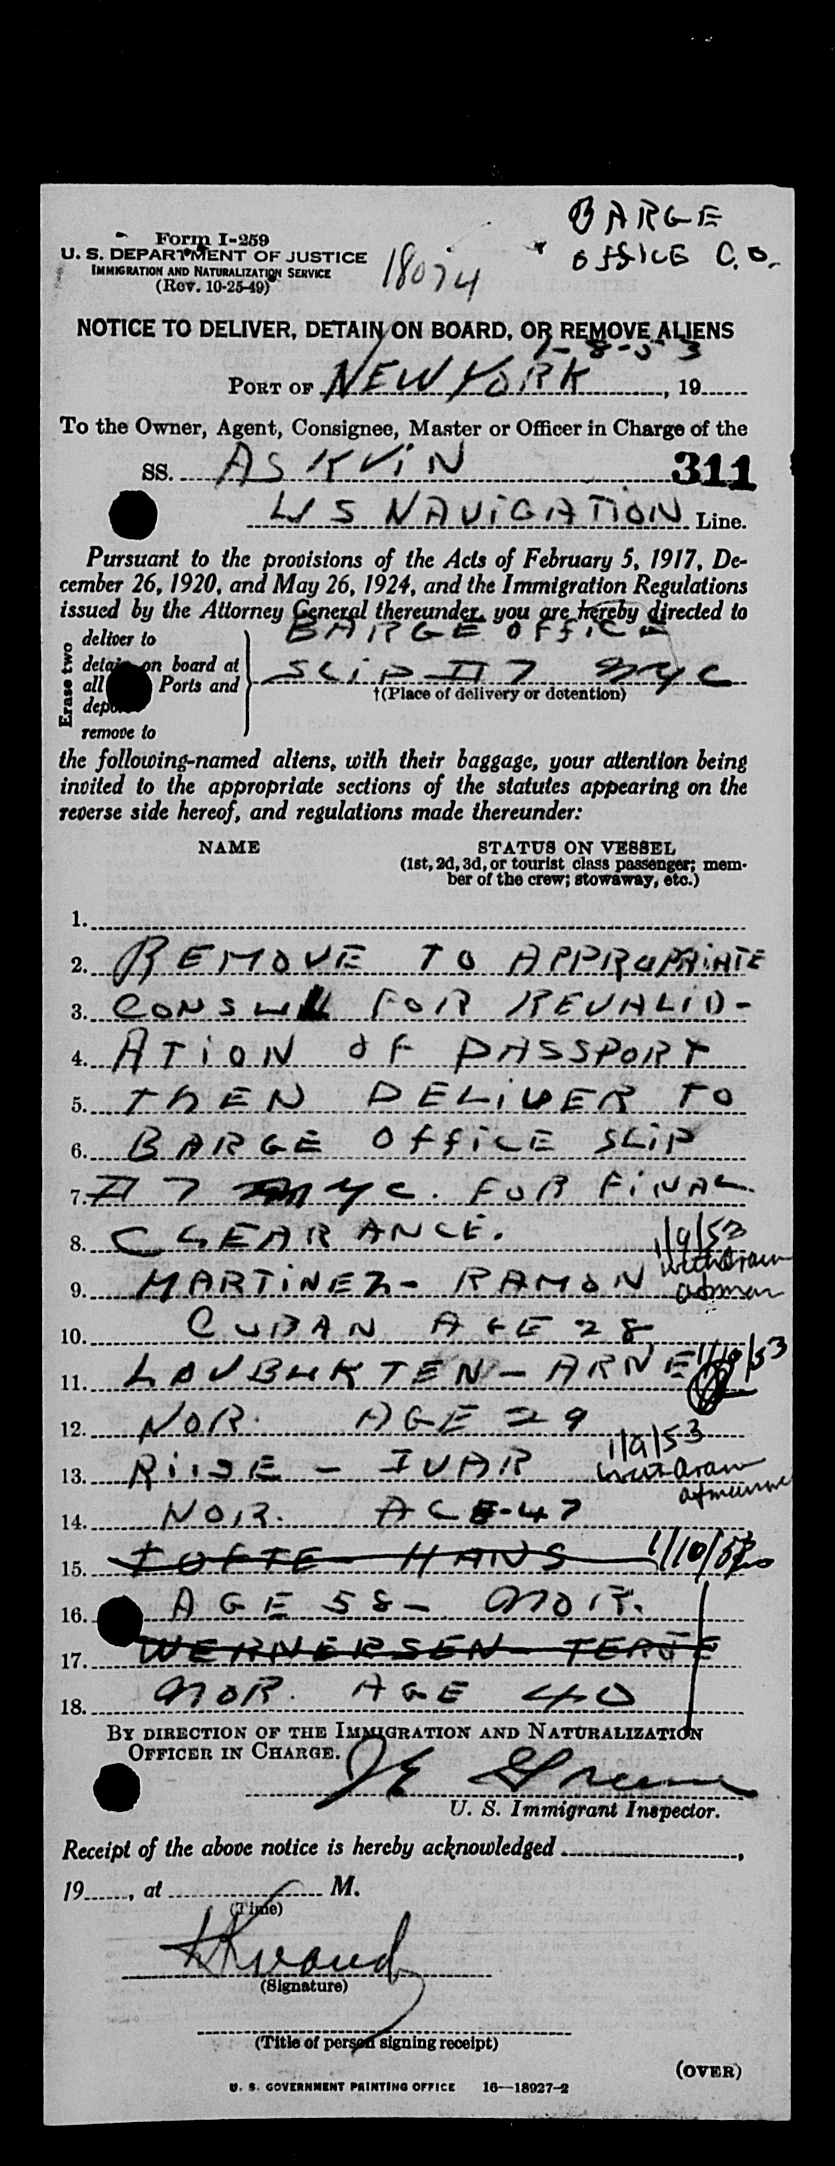 BARGE
OFFICE C.O.
Form I-259
U. S. DEPARTMENT OF JUSTICE
IMMIGRATION AND NATURALIZATION SERVICE
(Rev. 10-25-49)
18074
NOTICE TO DELIVER, DETAIN ON BOARD, OR REMOVE ALIENS
1-8-53
PORT OF NEW YORK, 19
To the Owner, Agent, Consignee, Master or Officer in Charge of the
SS. ASKVIN 311
US NAVIGATION Line.
Pursuant to the provisions of the Acts of February 5, 1917, De-
cember 26, 1920, and May 26, 1924, and the Immigration Regulations
issued by the Attorney General thereunder, you are hereby directed to
Erase two
deliver to BARGE OFFICE
detain on board at
all Ports and SLIP #7 NYC
†(Place of delivery or detention)
remove to
the following-named aliens, with their baggage, your attention being
invited to the appropriate sections of the statutes appearing on the
reverse side hereof, and regulations made thereunder:
NAME STATUS ON VESSEL
(1st, 2d, 3d, or tourist class passenger; mem-
ber of the crew; stowaway, etc.)
1.
2. REMOVE TO APPROPRIATE
3. CONSUL FOR REVALID-
4. ATION OF PASSPORT
5. THEN DELIVER TO
6. BARGE OFFICE SLIP
7. # 7 NYC. FOR FINAL
8. CLEARANCE. 1/9/53
withdrawn
9. MARTINEZ - RAMON
10. CUBAN AGE 28
11. LAUBUKTEN - ARNE 1/10/53
12. NOR. AGE 29
1/9/53
13. RIISE - IVAR withdrawn
14. NOR. AGE-47
15. TOFTE - HANS 1/10/53
16. AGE 58 - NOR.
17. WERNERSEN - TERJE
18. NOR. AGE 40
BY DIRECTION OF THE IMMIGRATION AND NATURALIZATION
OFFICER IN CHARGE.
U. S. Immigrant Inspector.
Receipt of the above notice is hereby acknowledged ,
19 , at M.
(Time)
(Signature)
(Title of person signing receipt)
(OVER)
U. S. GOVERNMENT PRINTING OFFICE 16—18927-2